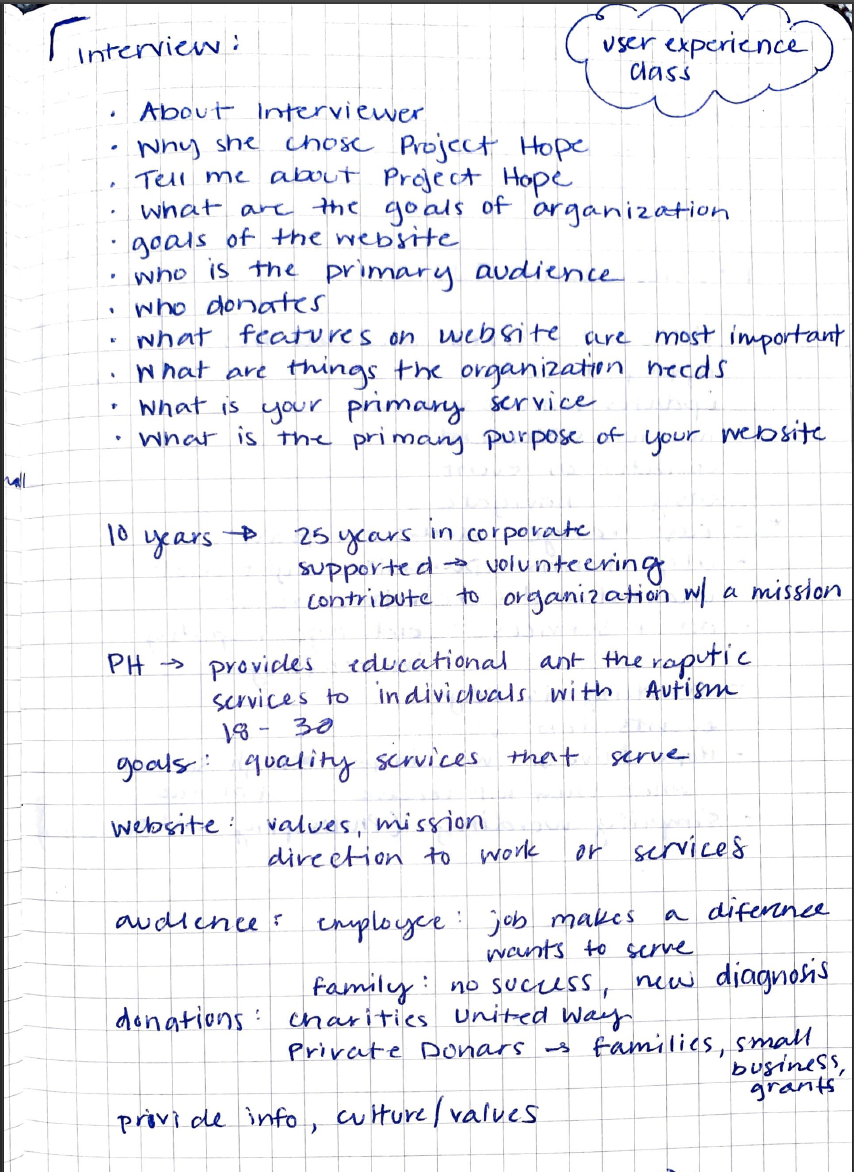 Interview:
user experience
class
• About Interviewer
• Why she chose Project Hope
• Tell me about Project Hope
• What are the goals of organization
• goals of the website
• who is the primary audience
• who donates
• what features on website are most important
• What are things the organization needs
• What is your primary service
• What is the primary purpose of your website
10 years → 25 years in corporate
supported → volunteering
contribute to organization w/ a mission
PH → provides educational ant theraputic
services to individuals with Autism
18 - 30
goals: quality services that serve
website: values, mission
direction to work or services
audience: employee: job makes a diference
wants to serve
family: no success, new diagnosis
donations: charities United Way
Private Donars → families, small
business,
grants
privide info, culture/values